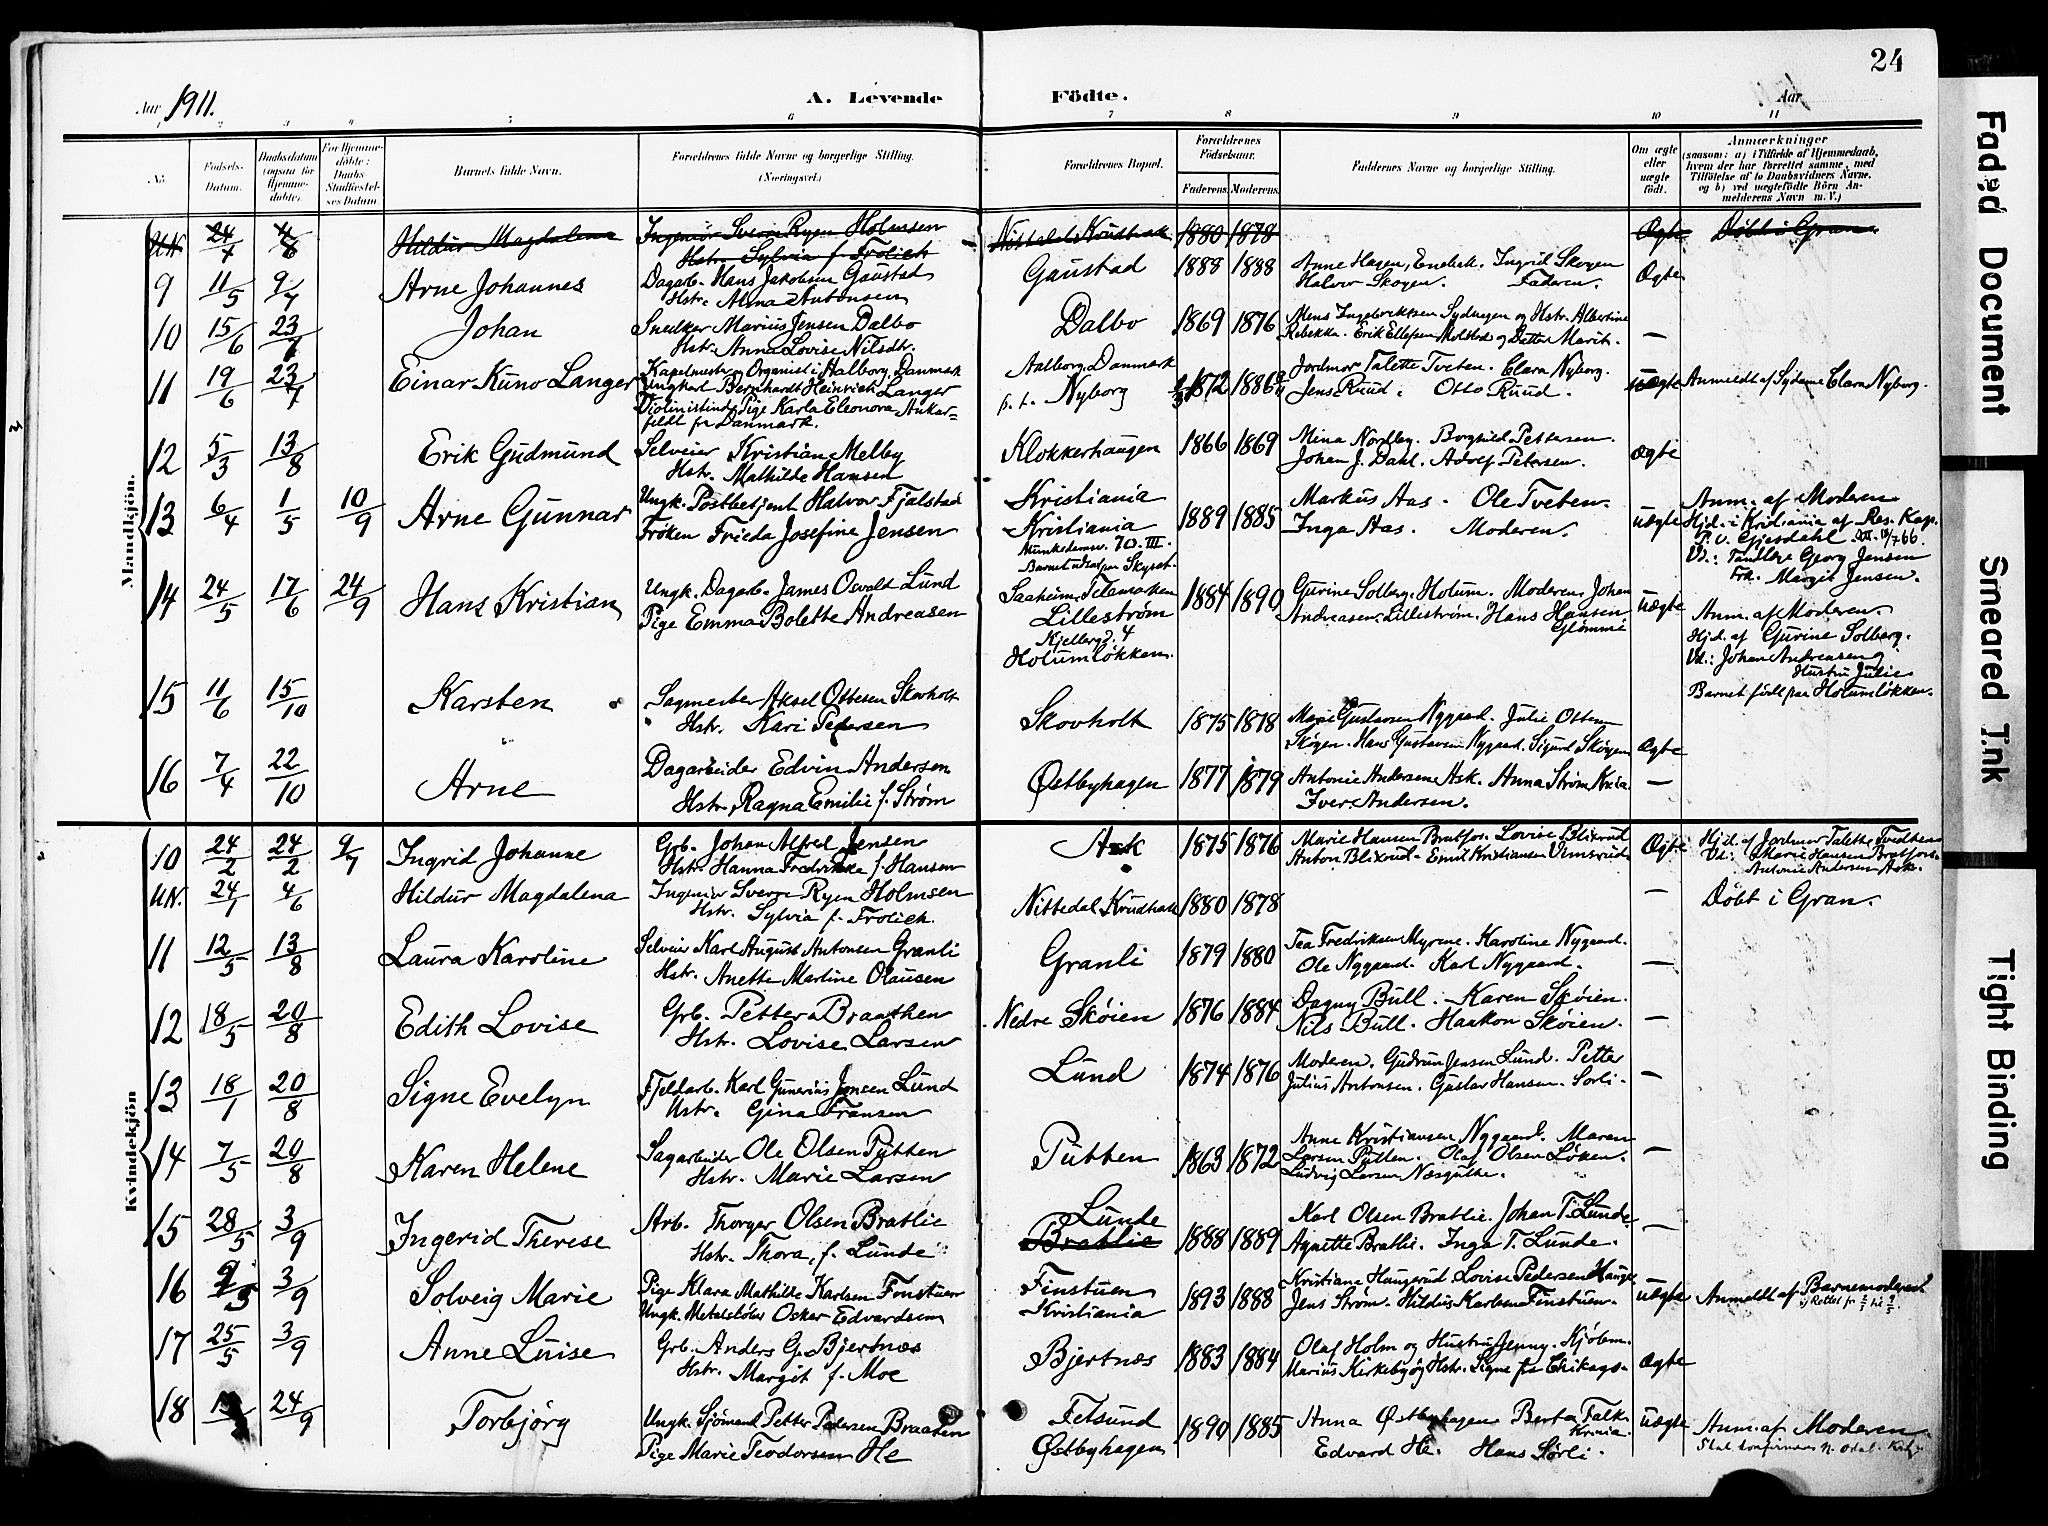 24
Aar 1911.
A. Levende
Födte.
Aar
1 2 3 4 5 6 7 8 9 10 11
No
Födsels-Datum.
Daabsdatum (ogsaa for Hjemmedöbte).
For Hjemmedöbte: Daabs-Stadfæstelses Datum
Barnets fulde Navn.
Forældrenes fulde Navne og borgerlige Stilling.
(Næringsvei.)
Forældrenes Bopæl.
Forældrenes Födselsaar.
Faderens. Moderens.
Faddernes Navne og borgerlige Stilling.
Om ægte eller uægte födt.
Anmærkninger
(saasom: a) i Tilfælde af Hjemmedaab, hvem der har forrettet samme, med Tilföielse af to Daabsvidners Navne, og b) ved uægtefödte Börn Anmelderens Navn m. V.)
Mandkjön.
U.N. 24/4 4/6 Hildur Magdalena Ingeniør Sverre Ryen Holmsen Nittedals Krudtværk 1880 1878 Ægte Döbt i Gran.
Hstr. Sylvia f. Frölich
9 11/5 9/7 Arne Johannes Dagarb. Hans Jakobsen Gaustad Gaustad 1888 1888 Anne Hagen, Enebak. Ingrid Skogen Ægte
Hstr. Alma Antonsen Halvor Skogen. Faderen.
10 15/6 23/7 Johan Snedker Marius Jensen Dalbo Dalbo 1869 1876 Mens Ingebrektsen Sydengen og Hstr. Albertine —
Hstr. Anna Lovise Nilsdtr. Rebekka. Erik Ellefsen Molstad og Datter Marit.
11 19/6 23/7 Einar Kuno Langer Kapelmester og Organist i Aalborg, Danmark Aalborg, Danmark 1872 1886 Jordmor Talette Tveten. Clara Nyborg. uægte Anmeldt af Sydame Clara Nyborg.
Ungkarl Bernhardt Heinrich Langer p. t. Nyborg Jens Ruud. Otto Ruud.
Violinistinde Pige Karla Eleonora Ankerfeldt fr Danmark.
12 5/3 13/8 Erik Gudmund Selveier Kristian Melby Klokkerhaugen 1866 1869 Mina Nordby. Borghild Pettersen. Ægte
Hstr. Mathilde Hansen Johan J. Dahl. Adolf Petersen.
13 6/4 1/5 10/9 Arne Gunnar Ungk. Postbetjent Halvor Fjalstad Kristiania 1889 1885 Markus Aas. Ole Tveten. uægte Anm. af Moderen
Fröken Frieda Josefine Jensen Kristiania Inga Aas. Moderen. Hjd. i Kristiania af Res. Kap.
Munkedamsv. 70. III. P. v. Gjesdahl
Barnet udsat paa Skyset. Vd.: Georg Jensen
Frk. Margit Jensen.
14 24/5 17/6 24/9 Hans Kristian Ungk. Dagarb. James Osvald Lund Saaheim, Telemarken 1884 1890 Gurine Solberg, Holum. Moderen. Johan uægte
Pige Emma Bolette Andreasen Lilleström Andreasen, Lilleström. Hans Hansen Anm. af Moderen.
Kjellergd. 4 Glömmi Hjd. af Gurine Solberg.
Holumlökken. Vd.: Johan Andreasen og Hustru Julie
Barnet födt paa Holumlökken.
15 11/6 15/10 Karsten Sagmester Aksel Ottesen Skovholt Skovholt 1875 1878 Marie Gustavsen Nygaard. Julie Ottesen
Hstr. Kari Petersen Skogen. Hans Gustavsen Nygaard. Sigurd Skogen Ægte
16 7/4 22/10 Arne Dagarbeider Edvin Andersen Østbyhagen 1877 1879 Antonie Andersen Ask. Anna Strøm Kria. —
Hstr. Ragna Emilie f. Strøm Iver Andersen.
Kvindekjön
10 24/2 24/2 9/7 Ingrid Johanne Grb. Johan Alfred Jensen Ask 1875 1876 Marie Hansen Bratfos. Lovise Blixrud Ægte Hjd. af Jordmor Talette Tvedten
Hstr. Hanna Fredrikke f. Hansen Anton Blixrud. Emil Kristiansen Vensrud Vd.: Marie Hansen Bratfoss.
Antonie Andersen Ask.
U.N. 24/1 4/6 Hildur Magdalena Ingeniør Sverre Ryen Holmsen Nittedal Krudtværk 1880 1878 — Döbt i Gran.
Hstr. Sylvia f. Frölich.
11 12/5 13/8 Laura Karoline Selveier Karl August Antonsen Granli Granli 1879 1880 Tea Fredriksen Myrene. Karoline Nygaard. —
Hstr. Anette Martine Olausen Ole Nygaard. Karl Nygaard.
12 18/5 20/8 Edith Lovise Grb. Petter Braathen Nedre Skøien 1876 1884 Dagny Bull. Karen Skøien. —
Hstr. Lovise Larsen Nils Bull. Haakon Skøien.
13 18/1 20/8 Signe Evelyn Fjeldarb. Karl Gunerius Jensen Lund Lund 1874 1876 Moderen. Gudrun Jensen Lund. Petter —
Hstr. Gina Fransen Julius Antonsen. Gustav Hansen Sorli.
14 7/5 20/8 Karen Helene Sagarbeider Ole Olsen Putten Putten 1863 1872 Anne Kristiansen Nygaard. Maren —
Hstr. Marie Larsen Larsen Putten. Olaf Olsen Løken.
Ludvig Larsen Næsgutke.
15 28/5 3/9 Ingerid Therese Arb. Thorger Olsen Bratlie Lunde 1888 1889 Karl Olsen Bratlie. Johan T. Lunde. —
Hstr. Thora, f. Lunde Bratlie Agnette Bratlie. Inga T. Lunde.
16 9/5 3/9 Solveig Marie Pige Klara Mathilde Karlsen Finstuen Finstuen 1893 1888 Kristiane Haugerud. Lovise Pedersen Hauge uægte Anmeldt af Barnemoderen
Ungk. Metalstøber Oskar Edvardsen Kristiania Jens Strøm. Hildus Karlsen Finstuen.
17 25/5 3/9 Anne Luise Grb. Anders G. Bjertnæs Bjertnæs 1883 1884 Olaf Holm og Hustru Jenny. Kjölbm. Ægte
Hstr. Margit f. Moe Marius Kirkeby og Hstr. Signe fra Chikago
18 24/9 Torbjörg Ungk. Sjömand Petter Pedersen Braaten Fetsund 1890 1885 Anna Østbyhagen. Berta Falk Kria. uægte Anm. af Moderen
Pige Marie Teodorsen He Østbyhagen Edvard He. Hans Sørli.
Faded Document
Smeared Ink
Tight Binding